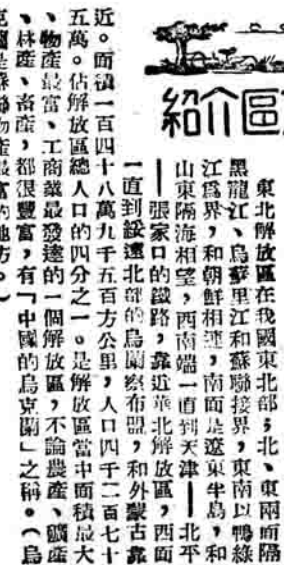 紹介區
東北解放區在我國東北部；北、東兩面隔
黑龍江、烏蘇里江和蘇聯接界，東南以鴨綠
江爲界，和朝鮮相連，南面是遼東半島，和
山東隔海相望，西南端一直到天津——北平
——張家口的鐵路，靠近華北解放區，西面
一直到綏遠北部的烏蘭察布盟，和外蒙古靠
近。面積一百四十八萬九千五百方公里，人口四千二百七十
五萬。佔解放區總人口的四分之一。是解放區當中面積最大
、物產最富、工商業最發達的一個解放區，不論農產、礦產
、林產、畜產，都很豐富，有「中國的烏克蘭」之稱。（烏
克蘭是蘇聯物產最富的地方。）